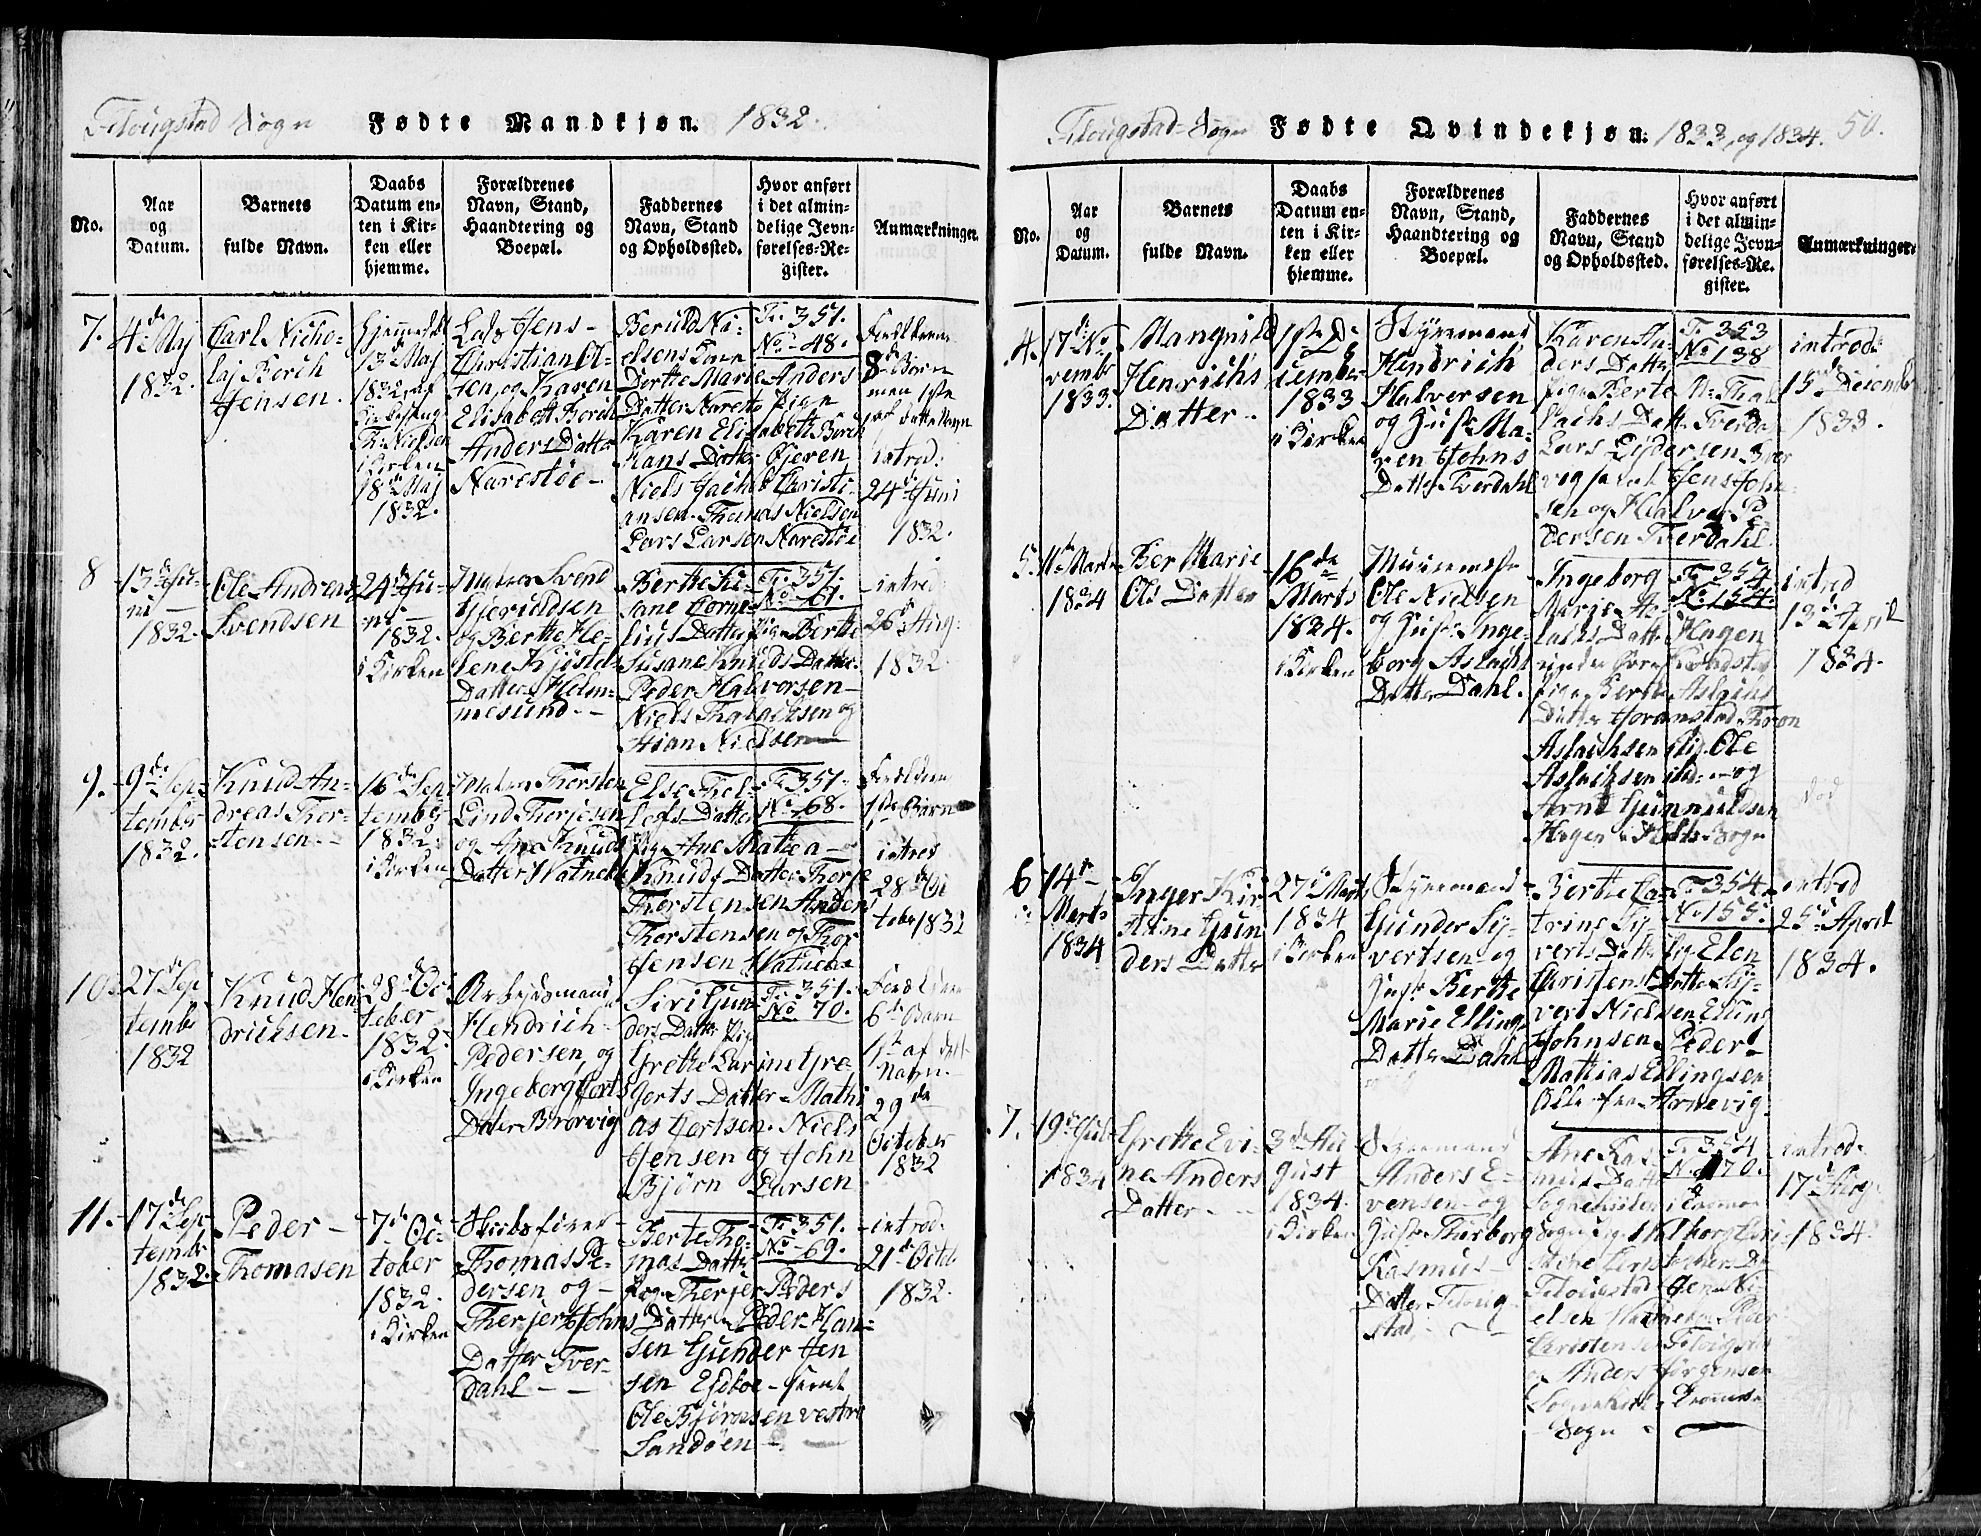 Flougstad Sogn Fødte Mandkjøn. 1832.
No.
Aar
og
Datum.
Barnets
fulde Navn.
Daabs
Datum en-
ten i Kir-
ken eller
hjemme.
Forældrenes
Navn, Stand,
Haandtering og
Boepæl.
Faddernes
Navn, Stand
og Opholdssted.
Hvor anført
i det almin-
delige Jevn-
førelses-Re-
gister.
Anmærkninger.
7.
4de Maj
1832.
Carl Nicho-
laj Borch
Jensen.
hjemmedøbt
13de Maj
1832, af
Th: Nielsen
i Kirken
18de Maj
1832.
Lods Jens
Christian Ol-
sen, og Karen
Elisabeth Borch
Anders Datter
Narestøe
Beruld Ni-
elsens Kone
Dorthe Marie Anders
Datter Narestø Pige
Karen Elisabeth Borch
Hans Datter Gjeren
Niels Jacob Christi-
ansen. Thomas Nielsen
Lars Larsen Narestøe
Fr. 351.
No. 48.
Forældrenes
8de Barn
men 1ste
af dette Navn
introd:
24de Juni
1832.
8
13de Ju-
ni
1832.
Ole Andreas
Svendsen
24de Ju-
ni
1832.
i Kirken
Svend
Gjeruldsen
og Berthe He-
lene Kjøstel
Datter Holm-
mesund
Berthe Su-
sane Corne-
lius Datter Pige Berthe
Susane Knuds Datter
Peder Halvorsen
Niels Thalachsen og
Stian Nielsen
Fr. 351.
No. 61.
introd
26de Aug.
1832
9.
9de Sep-
tember
1832.
Knud An-
dreas Thor-
stensen
16de Sep-
tember
1832.
i Kirken
Thorsten
Lind Thorjesen
og Ane Knuds
Datter Watneboe
Else Thel-
lefs Datter
Pige Ane Mathea
Knuds Datter Thorje
Thorstensen Anders
Thorstensen og Thor
Jensen Watneboe
Fr. 351.
No. 68.
Forældrenes
1ste Barn
introd
28de Oc
tober 1832
10.
27de Sep
tember
1832
Knud Hen
drichsen.
28de Oc
tober
1832.
i Kirken
Arbejdsmand
Hendrich
Pedersen, og
Ingeborg Gjerts
Datter Borøvig
Siri Gun-
ders Datter Pige
Grethe Larine Gre-
gerts Datter Mathi
as Gjertsen. Niels
Jensen og John
Bjørn Larsen
Fr. 351.
No. 70.
Forældrenes
6te Barn
1ste af dette
Navn.
29de
October
1832
11.
17de Sep-
tember
1832.
Peder
Thomasen
7de Oc-
tober
1832.
i Kirken
Skibsfører
Thomas Pe-
dersen og
Therjer Johns
Datter Tver-
dahl
Berte Tho-
mas Datter
Pige Therjer Peders
Datter Peder Han-
sen Gunder Jen
sen Eseboe samt
Ole Bjørnsen vestre
Sandøen
Fr. 351.
No. 69.
introd.
21de Octb.
1832.
Flougstad Sogn Fødte Qvindekjøn. 1833, og 1834. 50.
No.
Aar
og
Datum.
Barnets
fulde Navn.
Daabs
Datum en-
ten i Kir-
ken eller
hjemme.
Forældrenes
Navn, Stand,
Haandtering og
Boepæl.
Faddernes
Navn, Stand
og Opholdssted.
Hvor anført
i det almin-
delige Jevn-
førelses-Re-
gister.
Anmærkninger.
4.
17de No
vembr
1833.
Mangnild
Henrichs
Datter
1ste De
cember
1833
i Kirken
Styrmand
Hendrich
Halvorsen
og Hust: Ma-
ren Johns
Datter Tverdahl
Karen An-
ders Datter
Pige Berte
Datter Tverda
Lars Eydersen
vig samt Jens John-
sen og Halvor Pe
dersen Tverdahl
Fr 353
No. 138
introd:
15de Decembr
1833.
5.
1834
Ber Marie
Ols Datter
16de
Marts
1834.
i Kirken
Ole Nielsen
og Hust: Inge-
borg Aslachs
Datter Dahl.
Ingeborg
Marie As-
lachs Datter Hagen
Pige Berthe Aslachs
Datter
Aslachsen Ole
Aslachsen og
Arne Gunnuldsen
Hagen Holts Sogn
Fr 354
No. 154.
introd
13de April
1834.
død
6
14de
Marts
1834
Inger Kir
stine Gun
ders Datter
27de Marts
1834
i Kirken
Styrmand
Gunder Sy-
vertsen og
Hust: Berthe
Marie Ellings
Datter Dahl
Berthe Ca-
trine Sy-
verts Datter Elen
Christens Datter Sy-
vert Nielsen
Johnsen Peder
Mathias Ellingsen
Alle fra Arnevig
Fr. 354.
No. 155.
introd
25de April
1834.
7.
19de Juli
1834
Grethe Evi-
ne Anders
Datter
3de Au
gust
1834.
i Kirken
Styrmand
Anders E-
vensen og
Hust: Thorborg
Rasmus
Datter Floug-
stad
Ane Ras
mus Datter
Sogn Pige
Flougstad Jens Ni-
elsen Peder
Christensen Flougstad
og Anders Jørgensen
Tromøe
Sogn
Fr. 354
No. 170.
introd.
17de Aug.
1834.